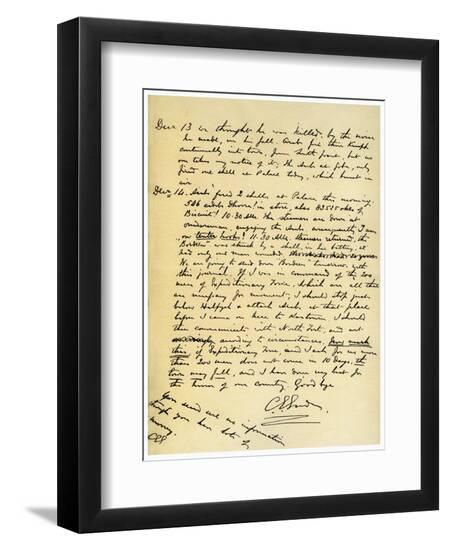 Decr 13 we thought he was killed by the noise
he made, in his fall. Arabs fire their Krupps
continually into town, from South front, but no
one takes any notice of it. The Arabs at Goba, only
fired one shell at Palace today, which burst in
air
Decr 14. Arabs fired 2 shells at Palace this morning.
546 ardebs Dhoora! in store, also 83525 okes of
Biscuit! 10.30 AM. The steamers are down at
Omdurman, engaging the Arabs, consequently I am
on tenter hooks! 11.30 AM. Steamers returned, the
"Bordein" was struck by a shell, in her battery, it
had only one man wounded
We are going to send down Bordein tomorrow with
this journal. If I was in command of the 200
men of Expeditionary Force, which are all that
are necessary for movement, I should stop just
below Halfyeh & attack Arabs at that place
before I came on here to Kartoum. I should
then communicate with North Fort, and act
according to circumstances. Now mark
this, if Expeditionary Force, and I ask for no more
than 200 men does not come in 10 days, the
town may fall, and I have done my best for
the honor of our country. Good bye
C G Gordon
You send me no information
though you have lots of
money.
CGG